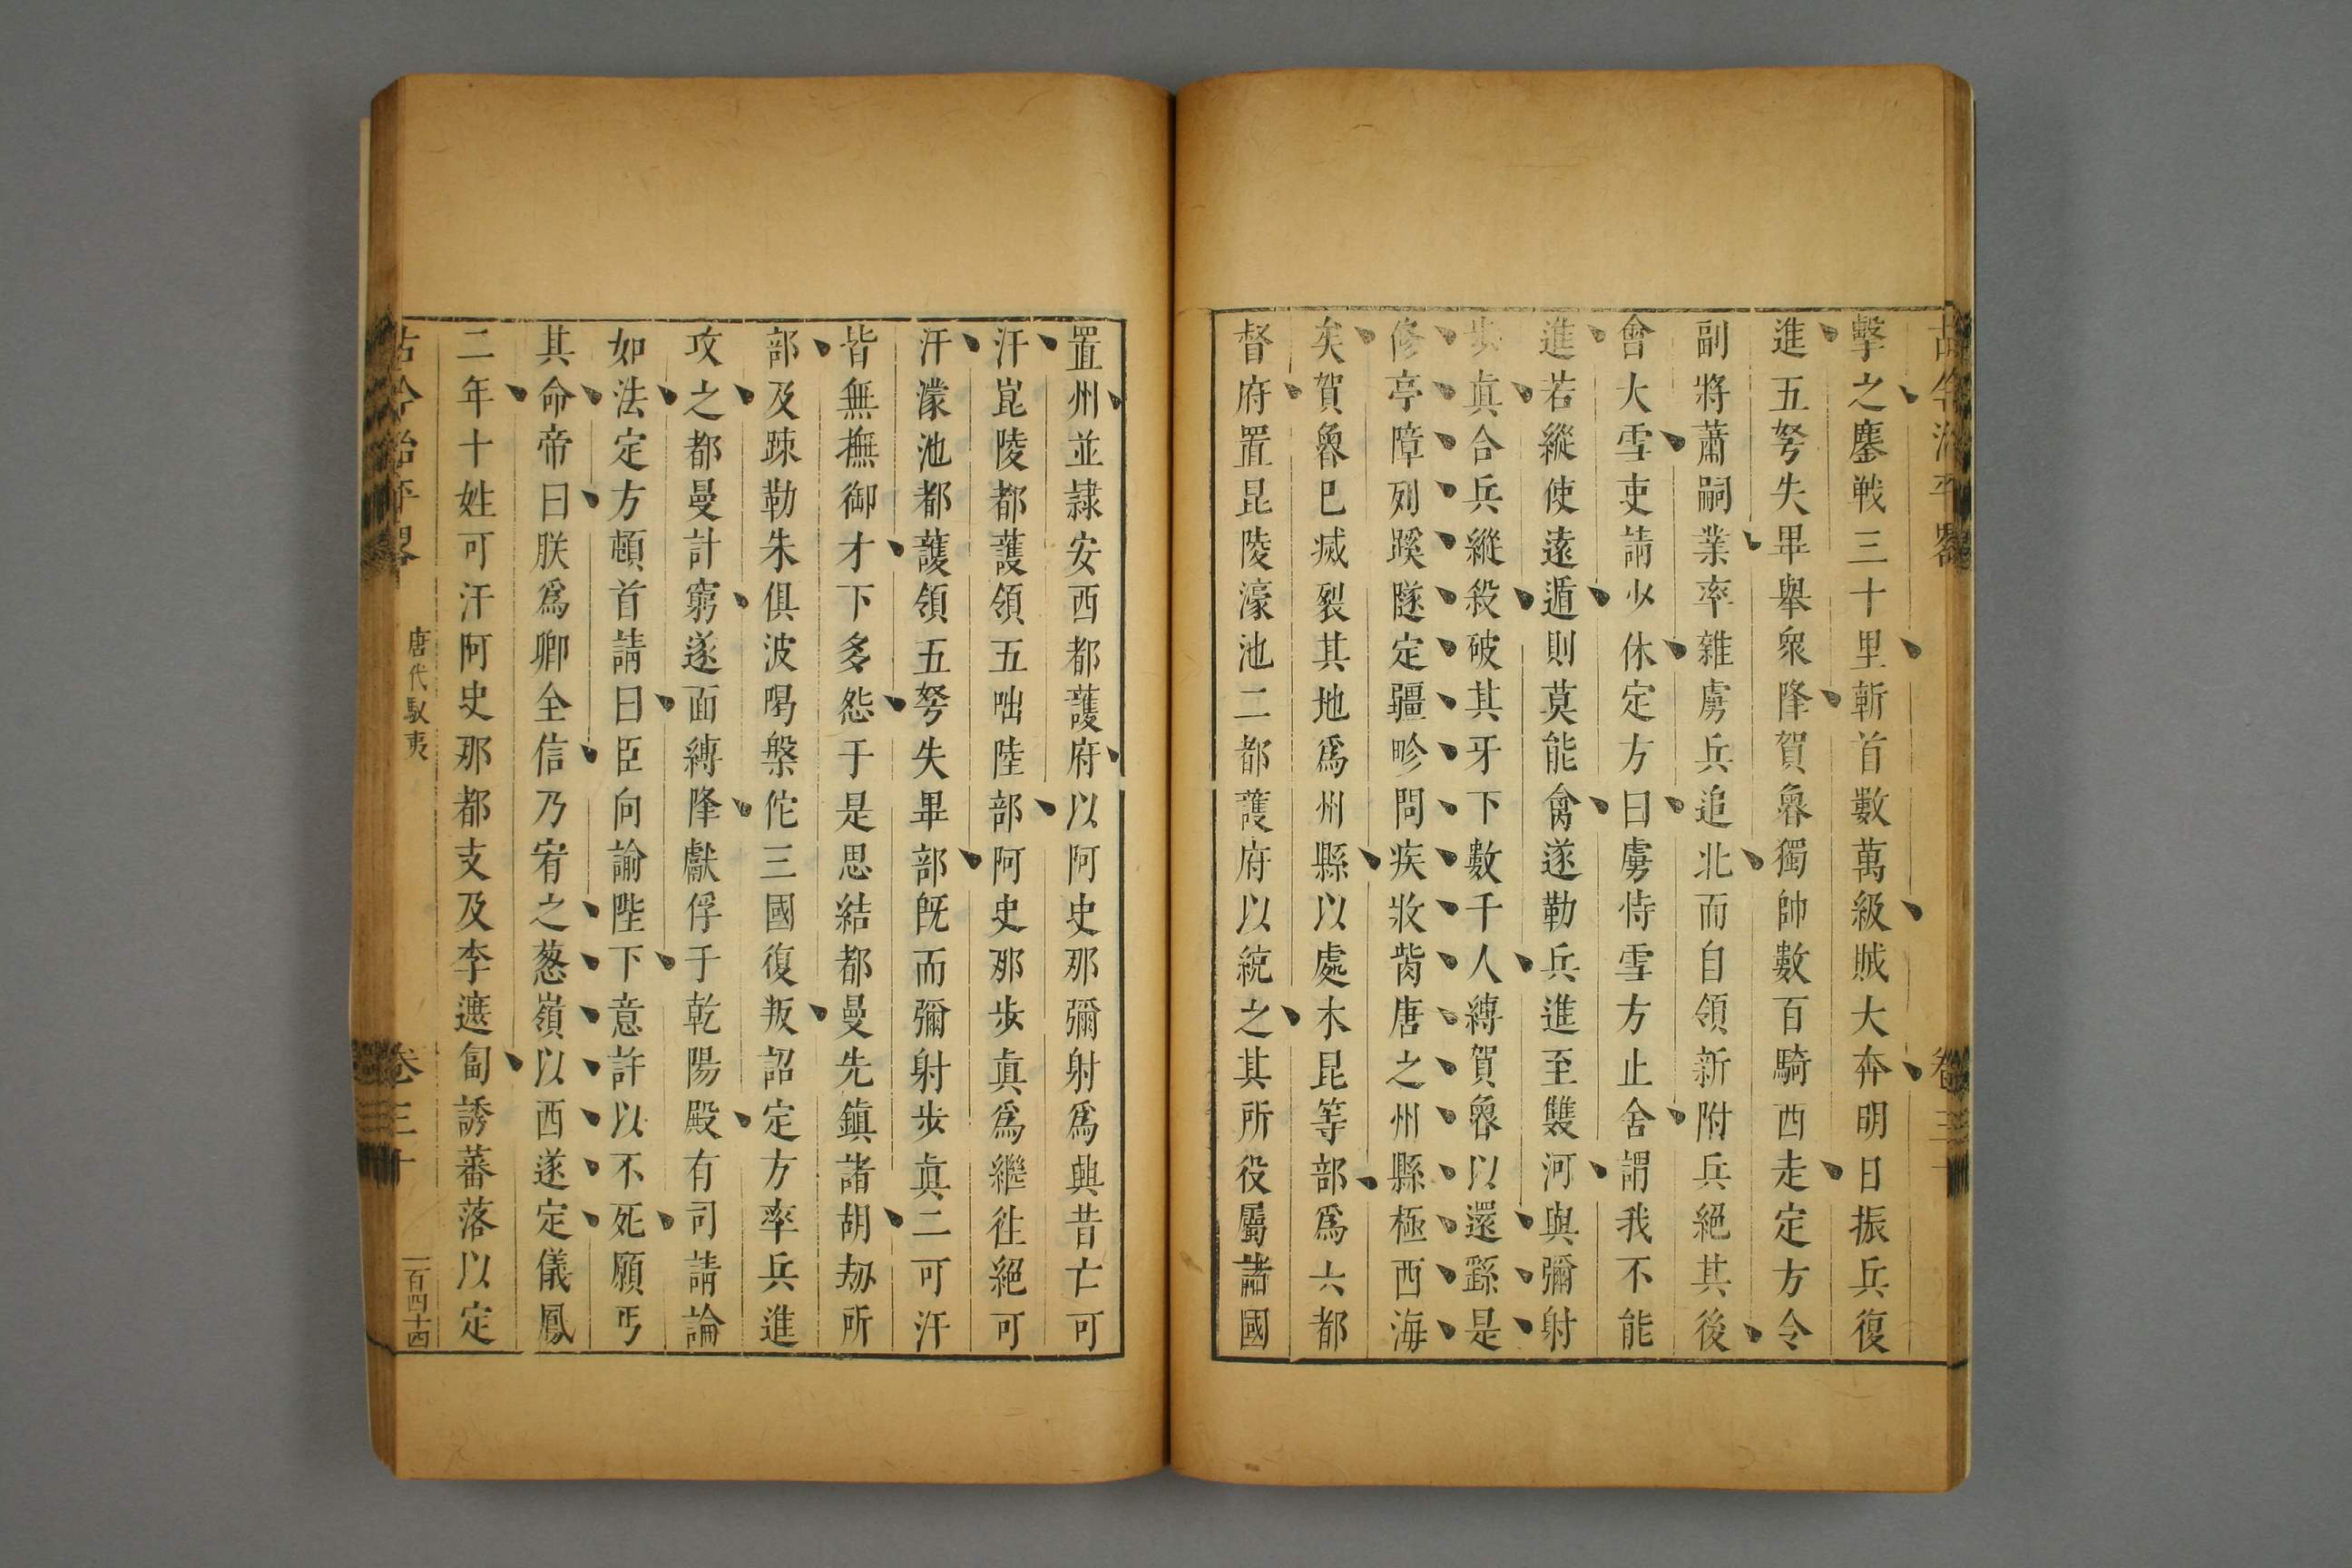 古今治平畧
卷三十
擊之鏖戰三十里斬首數萬級賊大奔明日振兵復
進五弩失畢舉衆降賀魯獨帥數百騎西走定方令
副將蕭嗣業率雜虜兵追北而自領新附兵絕其後
會大雪吏請少休定方曰虜恃雪方止舍謂我不能
進若縱使遠遁則莫能禽遂勒兵進至雙河與彌射
步真合兵縱殺破其牙下數千人縛賀魯以還繇是
修亭障列蹊隧定疆畛問疾收胔唐之州縣極西海
矣賀魯已滅裂其地爲州縣以處木昆等部爲六都
督府置昆陵濛池二都護府以統之其所役屬諸國
置州並隷安西都護府以阿史那彌射爲興昔亡可
汗崑陵都護領五咄陸部阿史那步真爲繼往絕可
汗濛池都護領五弩失畢部旣而彌射步真二可汗
皆無撫御才下多怨于是思結都曼先鎮諸胡劫所
部及踈勒朱俱波喝槃佗三國復叛詔定方率兵進
攻之都曼計窮遂面縛降獻俘于乾陽殿有司請論
如法定方頓首請曰臣向諭陛下意許以不死願丐
其命帝曰朕爲卿全信乃宥之葱嶺以西遂定儀鳳
二年十姓可汗阿史那都支及李遮匐誘蕃落以定
古今治平畧
唐代馭夷
卷三十
一百四十四